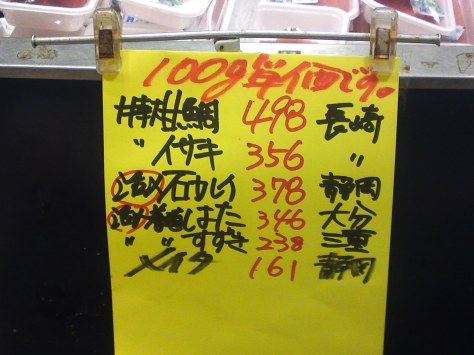 100g単価です。
鯛 498 長崎
〃 イサキ 356 〃
石カレイ 378 静岡
はた 346 大分
〃 〃 すずき 238 三重
メイタ 161 静岡